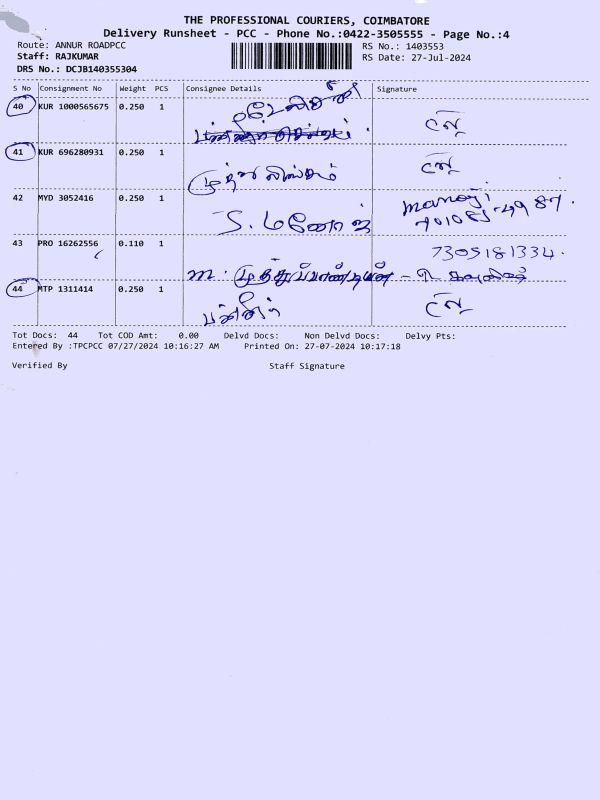 THE PROFESSIONAL COURIERS, COIMBATORE
Delivery Runsheet - PCC - Phone No.:0422-3505555 - Page No.:4
Route: ANNUR ROADPCC RS No.: 1403553
Staff: RAJKUMAR RS Date: 27-Jul-2024
DRS No.: DCJB140355304
S No Consignment No Weight PCS Consignee Details Signature
40 KUR 1000565675 0.250 1
41 KUR 696280931 0.250 1 முத்துலிங்கம்
42 MYD 3052416 0.250 1 S. மனோஜ் manoj
43 PRO 16262556 0.110 1 7305181334.
m. முத்துப்பாண்டியன் -
44 MTP 1311414 0.250 1
Tot Docs: 44 Tot COD Amt: 0.00 Delvd Docs: Non Delvd Docs: Delvy Pts:
Entered By :TPCPCC 07/27/2024 10:16:27 AM Printed On: 27-07-2024 10:17:18
Verified By Staff Signature